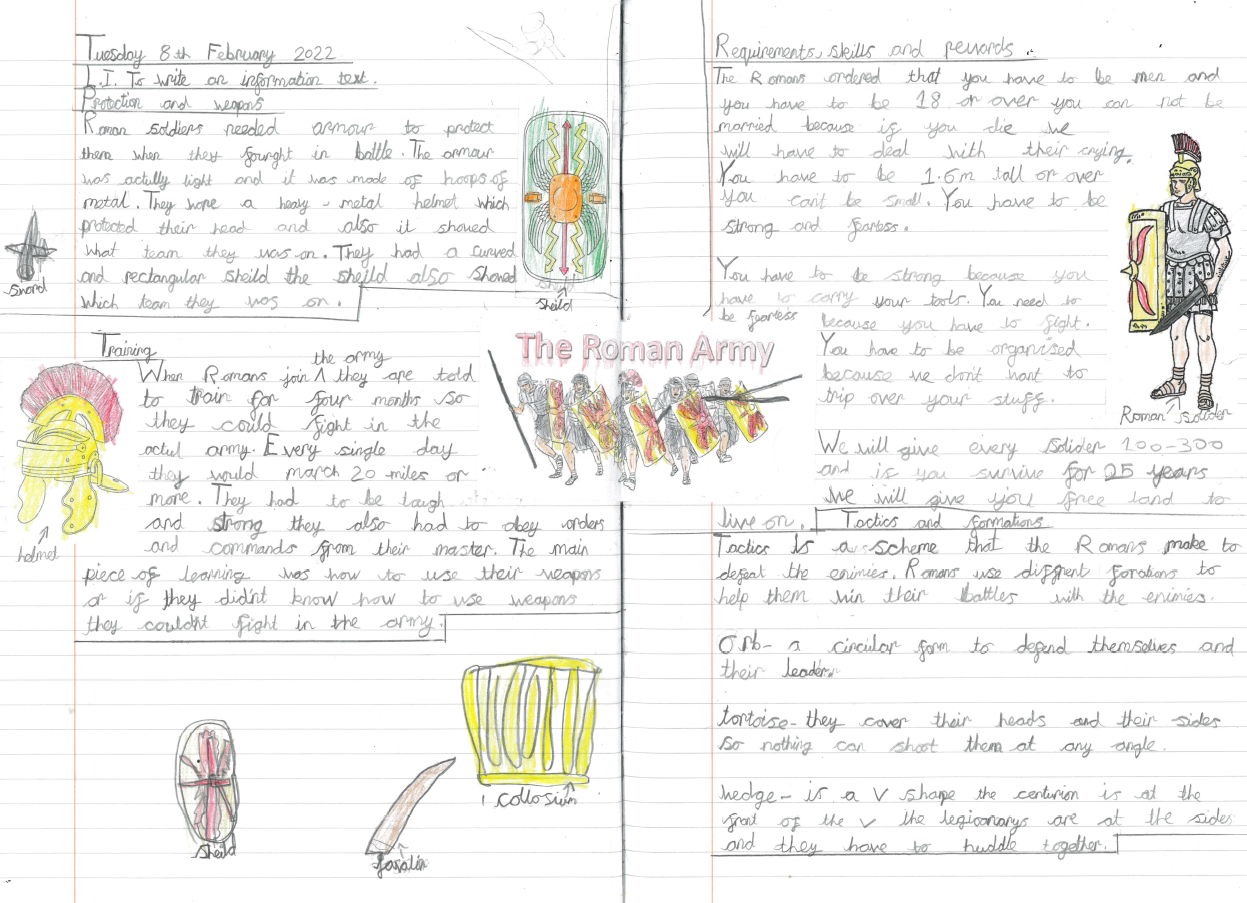 Tuesday 8th February 2022
L.I. To write an information text.
Protection and weapons
Roman soldiers needed armour to protect
them when they fought in battle. The armour
was actully light and it was made of hoops of
metal. They wore a heavy-metal helmet which
protected their head and also it showed
what team they was on. They had a curved
and rectangular sheild the sheild also showed
which team they was on.
sword
sheild
Training
the army
When Romans join ^ they are told
to train for four months so
they could fight in the
actul army. Every single day
they would march 20 miles or
more. They had to be tough
and strong they also had to obey orders
and commands from their master. The main
piece of learning was how to use their weapons
or if they did'nt know how to use weapons
they could'nt fight in the army.
helmet
sheild
Javalin
Collosium
The Roman Army
Requirements, skills and rewards.
The Romans ordered that you have to be men and
you have to be 18 or over you can not be
married because if you die we
will have to deal with their crying.
You have to be 1.6m tall or over
you can't be small. You have to be
strong and fearless.
You have to be strong because you
have to carry your tools. You need to
be fearless because you have to fight.
You have to be organised
because we don't want to
trip over your stuff.
Roman solider
We will give every solider 100-300
and if you survive for 25 years
we will give you free land to
live on.
Tactics and formations
Tactics is a scheme that the Romans make to
defeat the enimies. Romans use diffrent forations to
help them win their battles with the enimies.
Orb- a circular form to defend themselves and
their leader.
tortoise- they cover their heads and their sides
so nothing can shoot them at any angle.
wedge- is a V shape the centurion is at the
front of the V the legionarys are at the sides
and they have to huddle together.